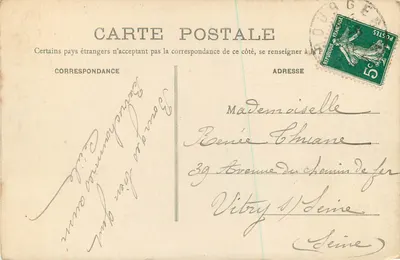 CARTE POSTALE
Certains pays étrangers n'acceptant pas la correspondance de ce côté, se renseigner à
CORRESPONDANCE
ADRESSE
BOURGES
5c
POSTES
Bourges bien
Mademoiselle
Renée Thuane
39 Avenue du chemin de fer
Vitry s/ Seine
(Seine)